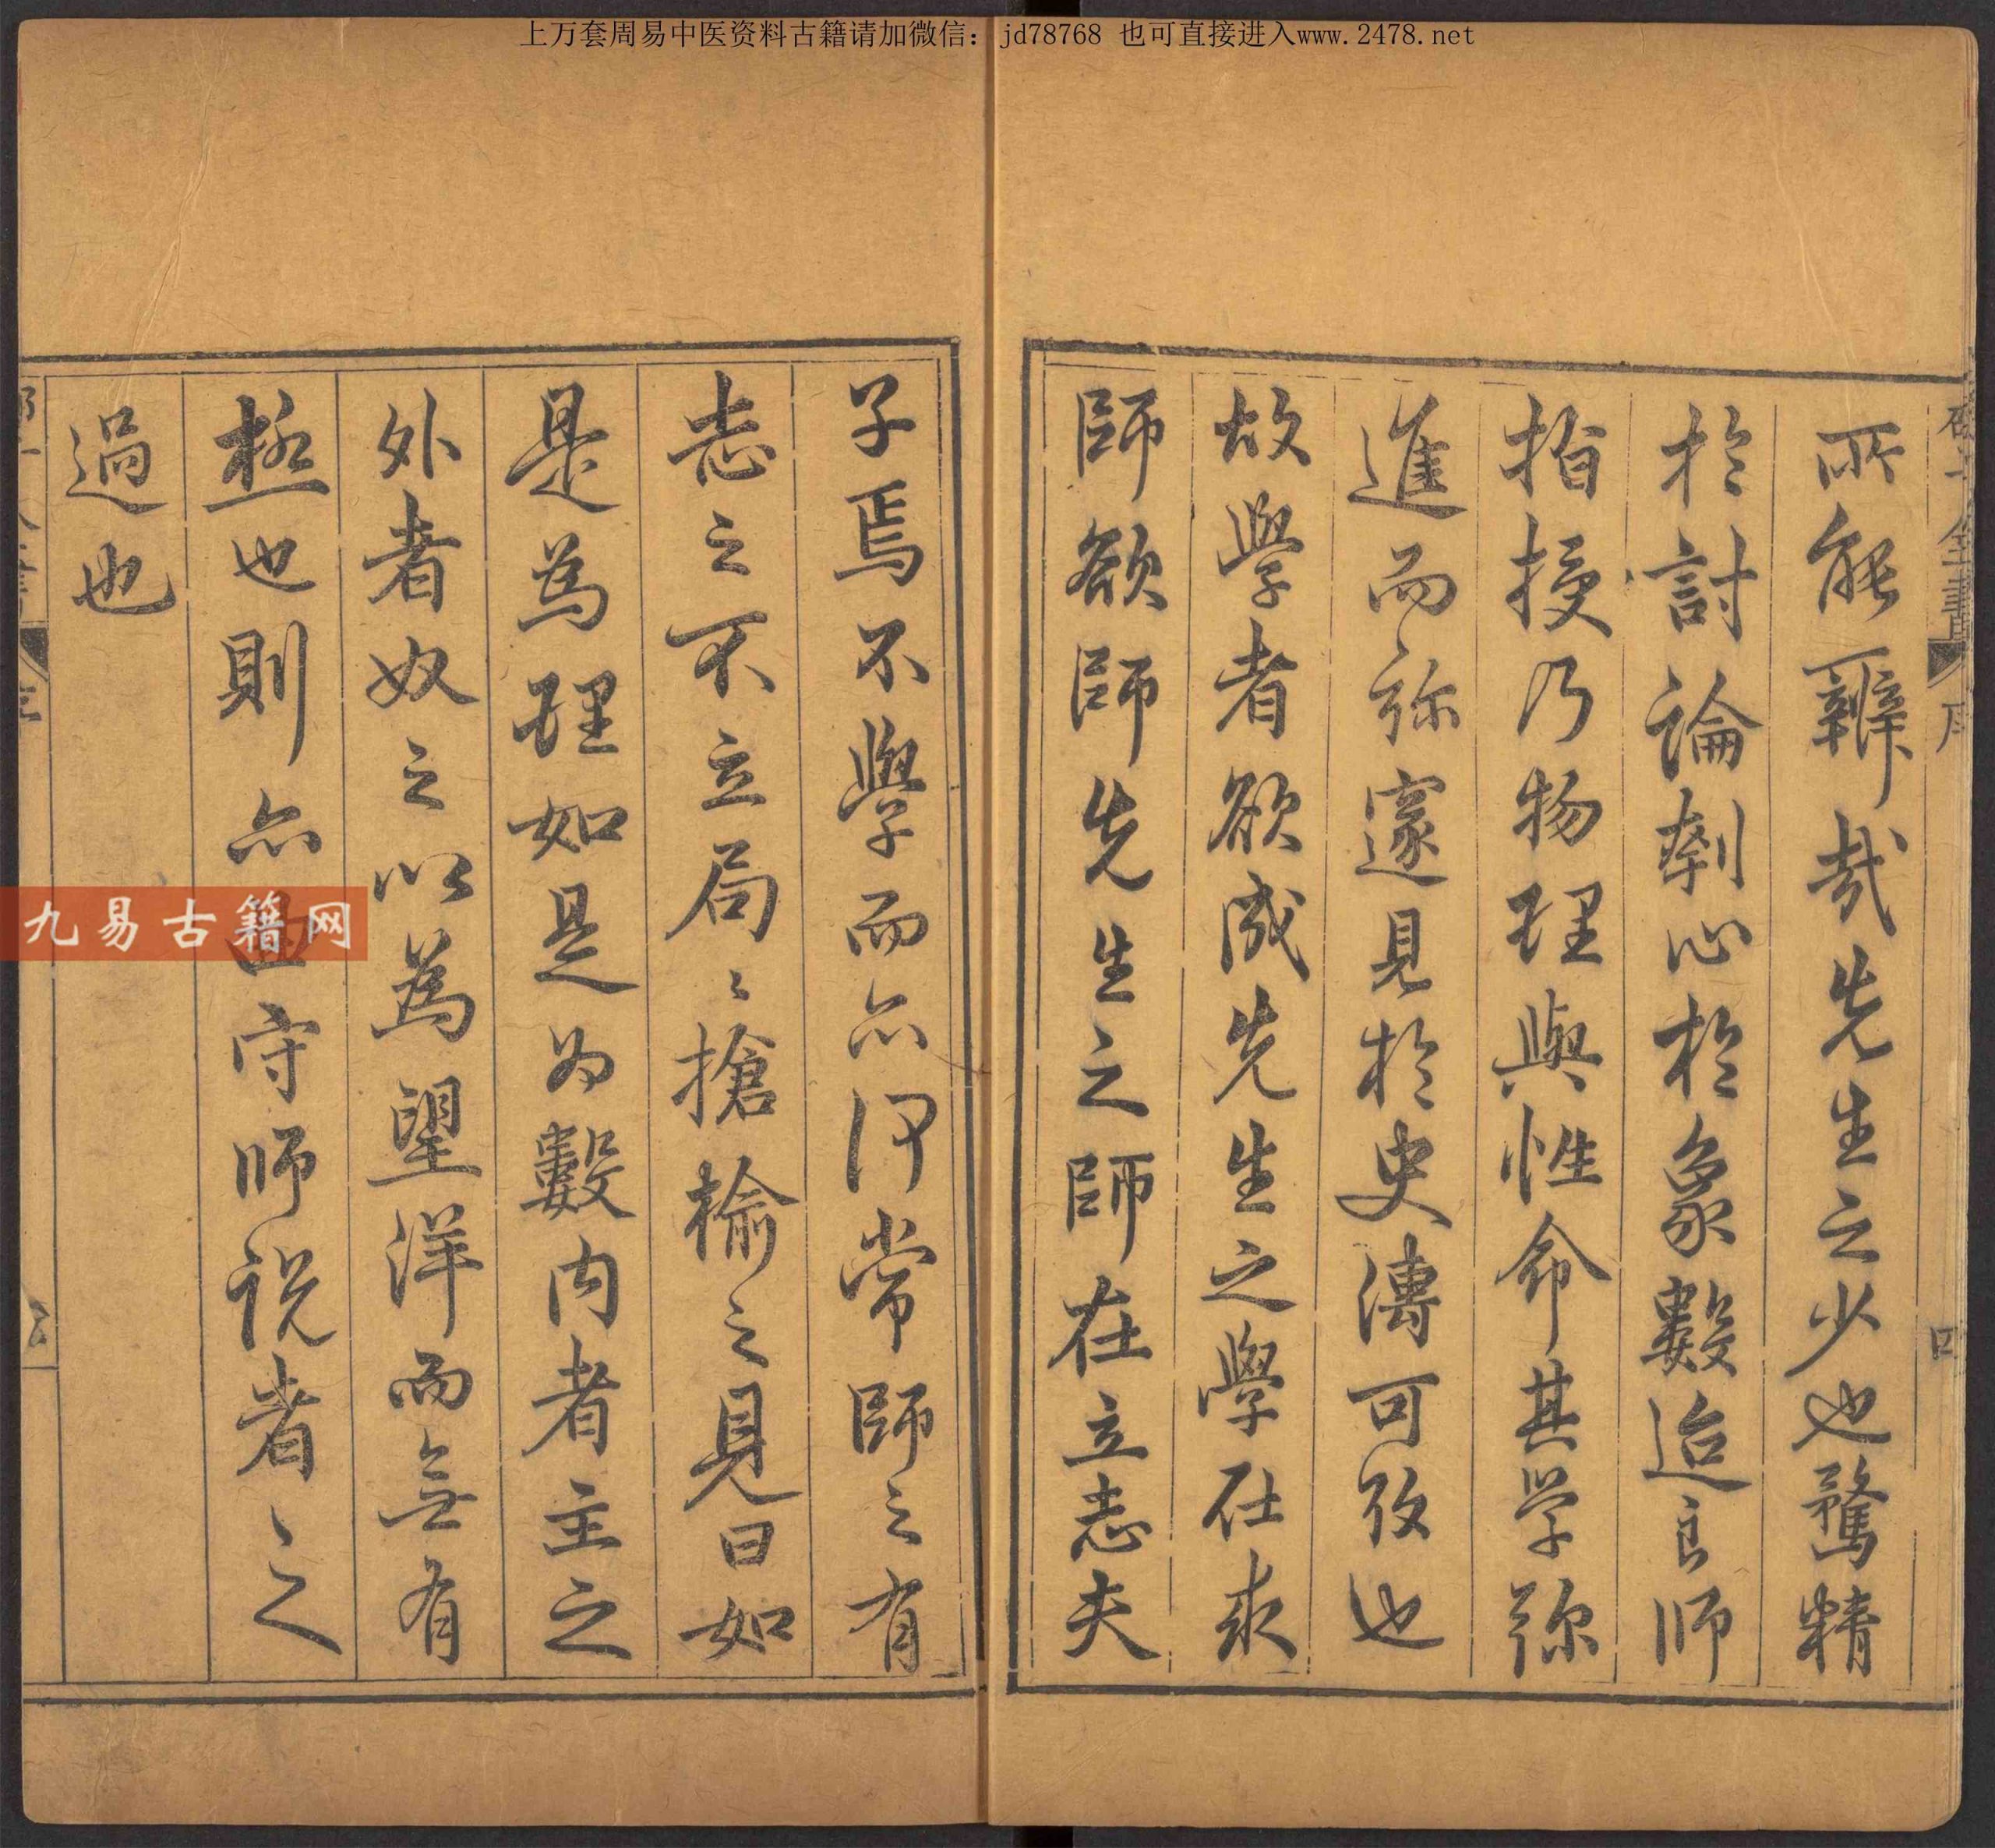 上万套周易中医资料古籍请加微信：jd78768 也可直接进入www.2478.net
所能辯哉先生之少也騖精
於討論刳心於象數迨良師
指授乃物理與性命其學弥
進而弥邃見於史傳可攷也
故學者欲成先生之學在求
師欲師先生之師在立志夫
子焉不學而亦何常師之有
志之不立局〻搶榆之見曰如
是為理如是为數内者主之
外者奴之以為望洋而無有
極也則亦曲守师説者之
過也
九易古籍网
序
四